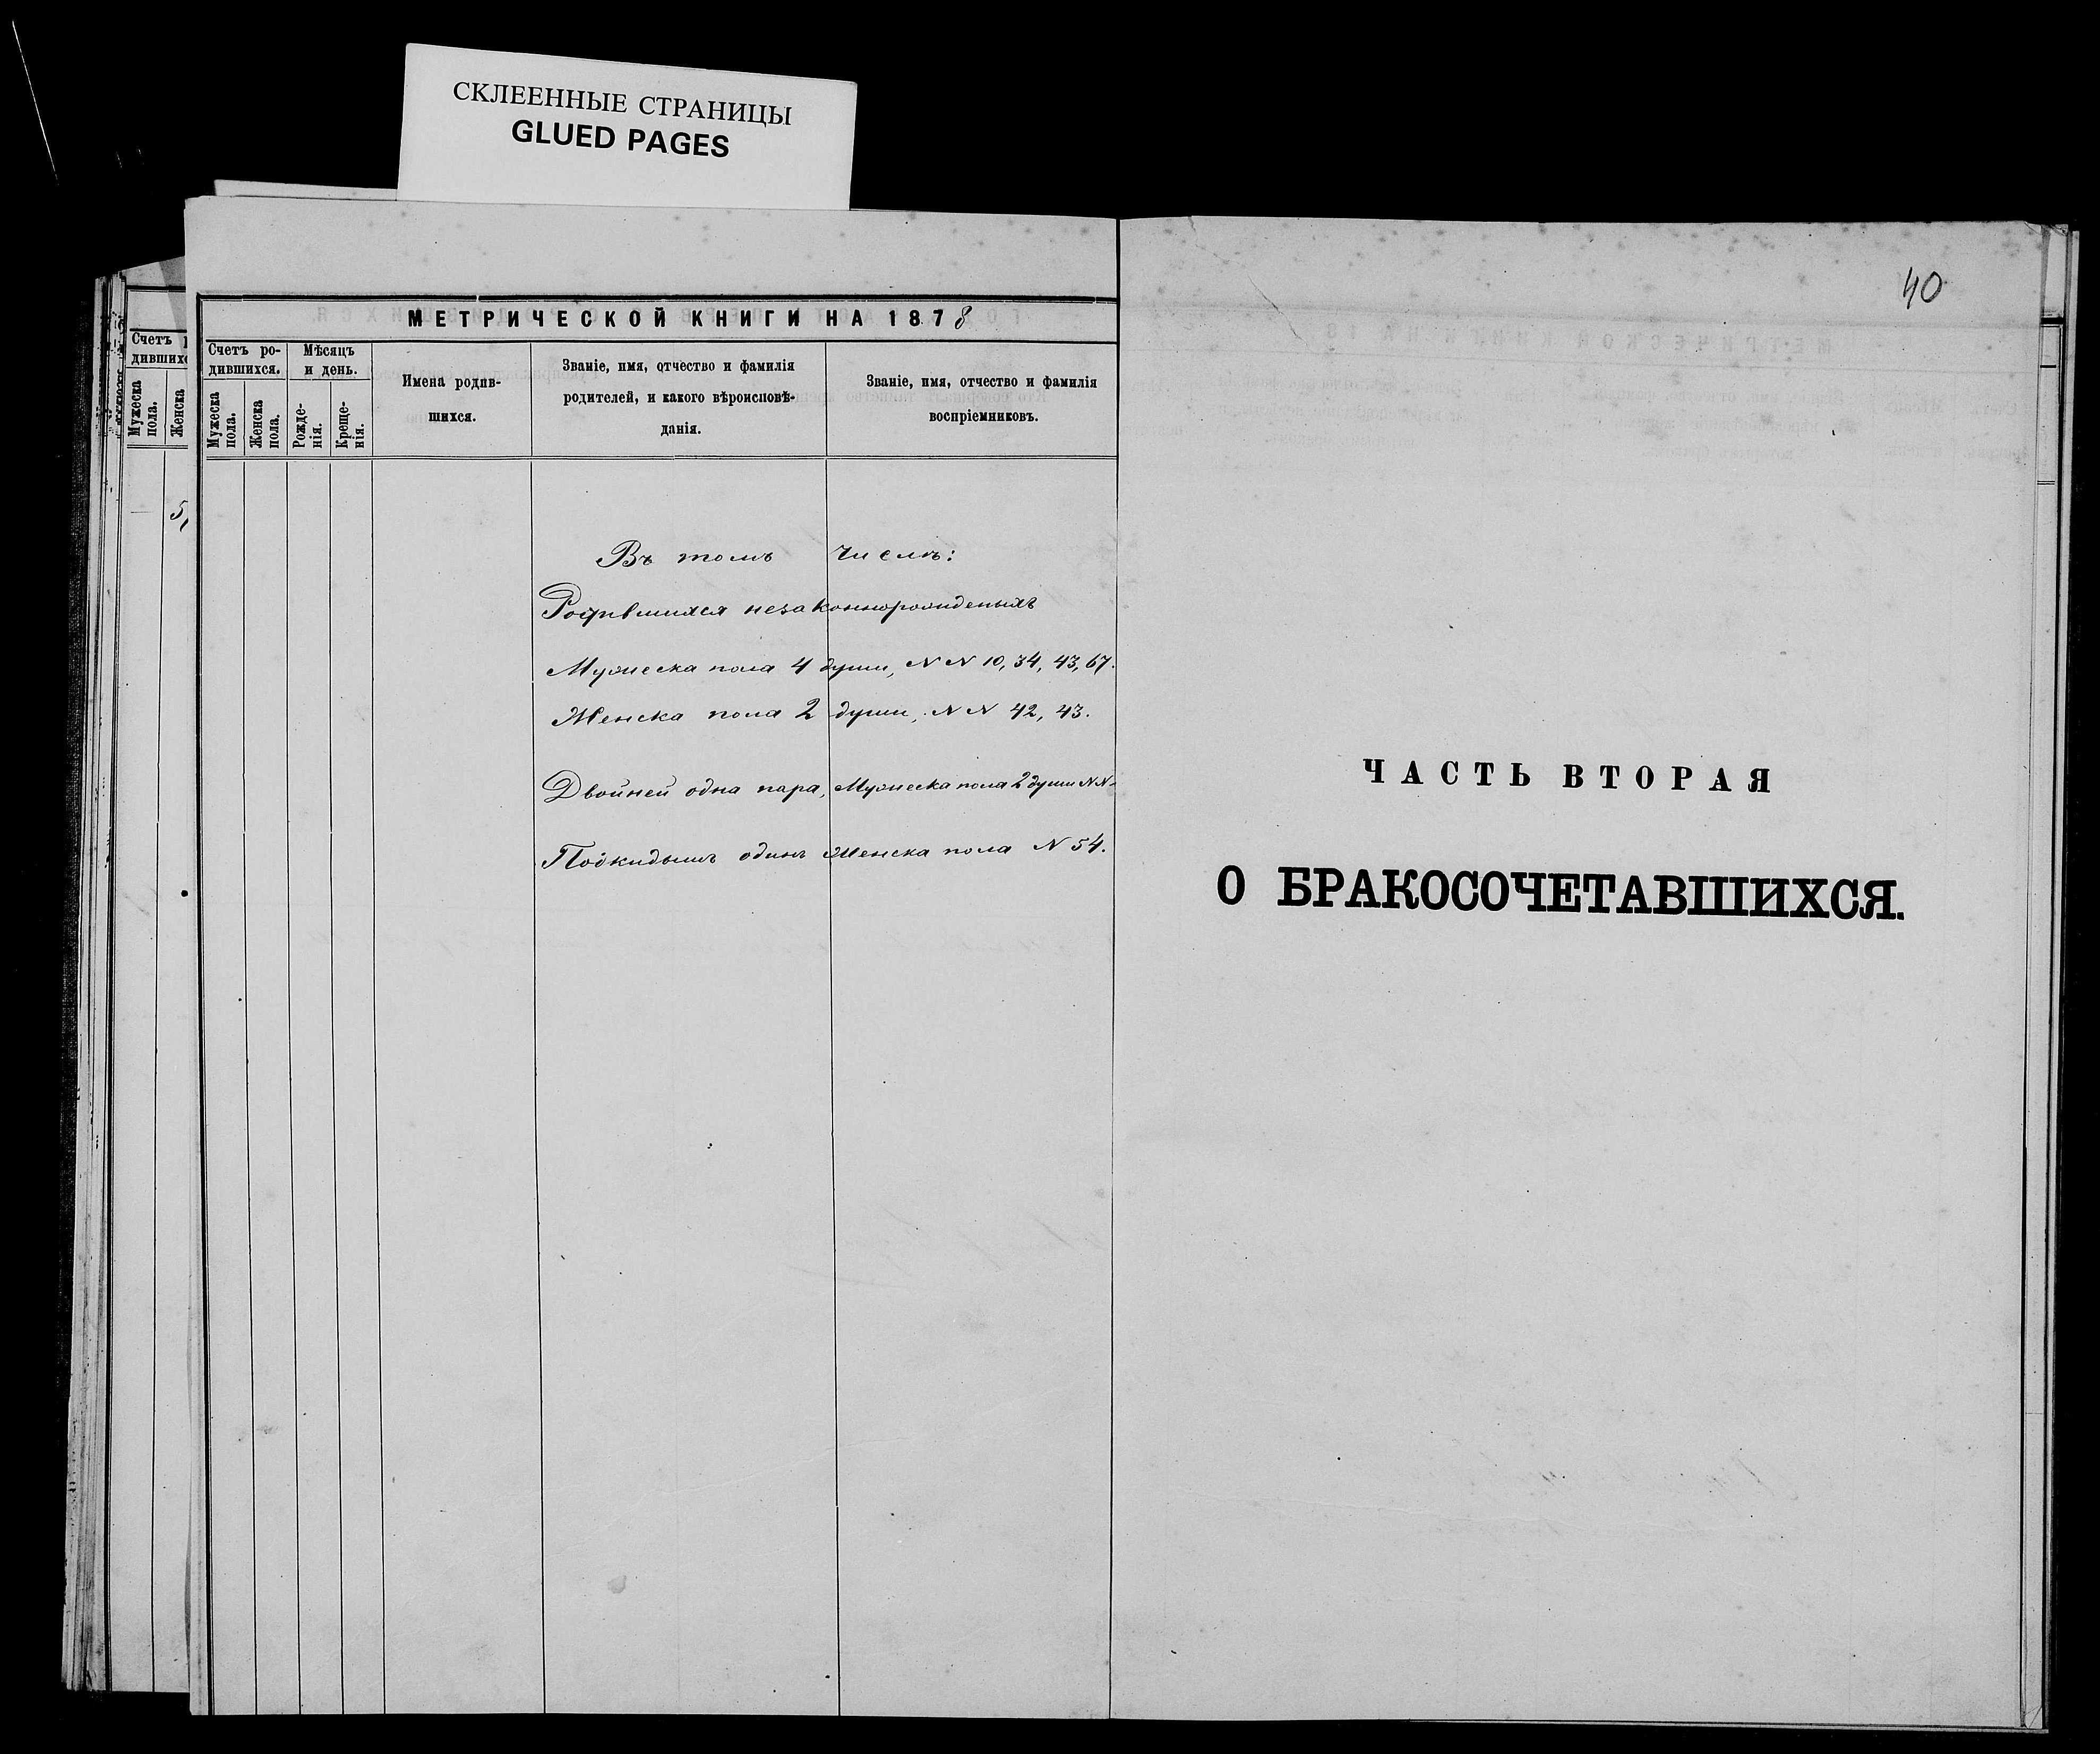 СКЛЕЕННЫЕ СТРАНИЦЫ
GLUED PAGES
Счетъ
дившихс
Мужеска пола.
Женска
5,
МЕТРИЧЕСКОЙ КНИГИ НА 1878
Счетъ ро-
дившихся.
Мѣсяцъ
и день.
Мужеска пола.
Женска пола.
Рожде-
нія.
Креще-
нія.
Имена родив-
шихся.
Званіе, имя, отчество и фамилія
родителей, и какого вѣроисповѣ-
данія.
Званіе, имя, отчество и фамилія
воспріемниковъ.
Въ томъ числѣ:
Родившихся незаконнорожденыхъ
Мужеска пола 4 души, N N 10, 34, 43, 67.
Женска пола 2 души, N N 42, 43.
Двойней одна пара, Мужеска пола 2 души N N
Подкидышъ одинъ Женска пола N 54.
40
ЧАСТЬ ВТОРАЯ
О БРАКОСОЧЕТАВШИХСЯ.